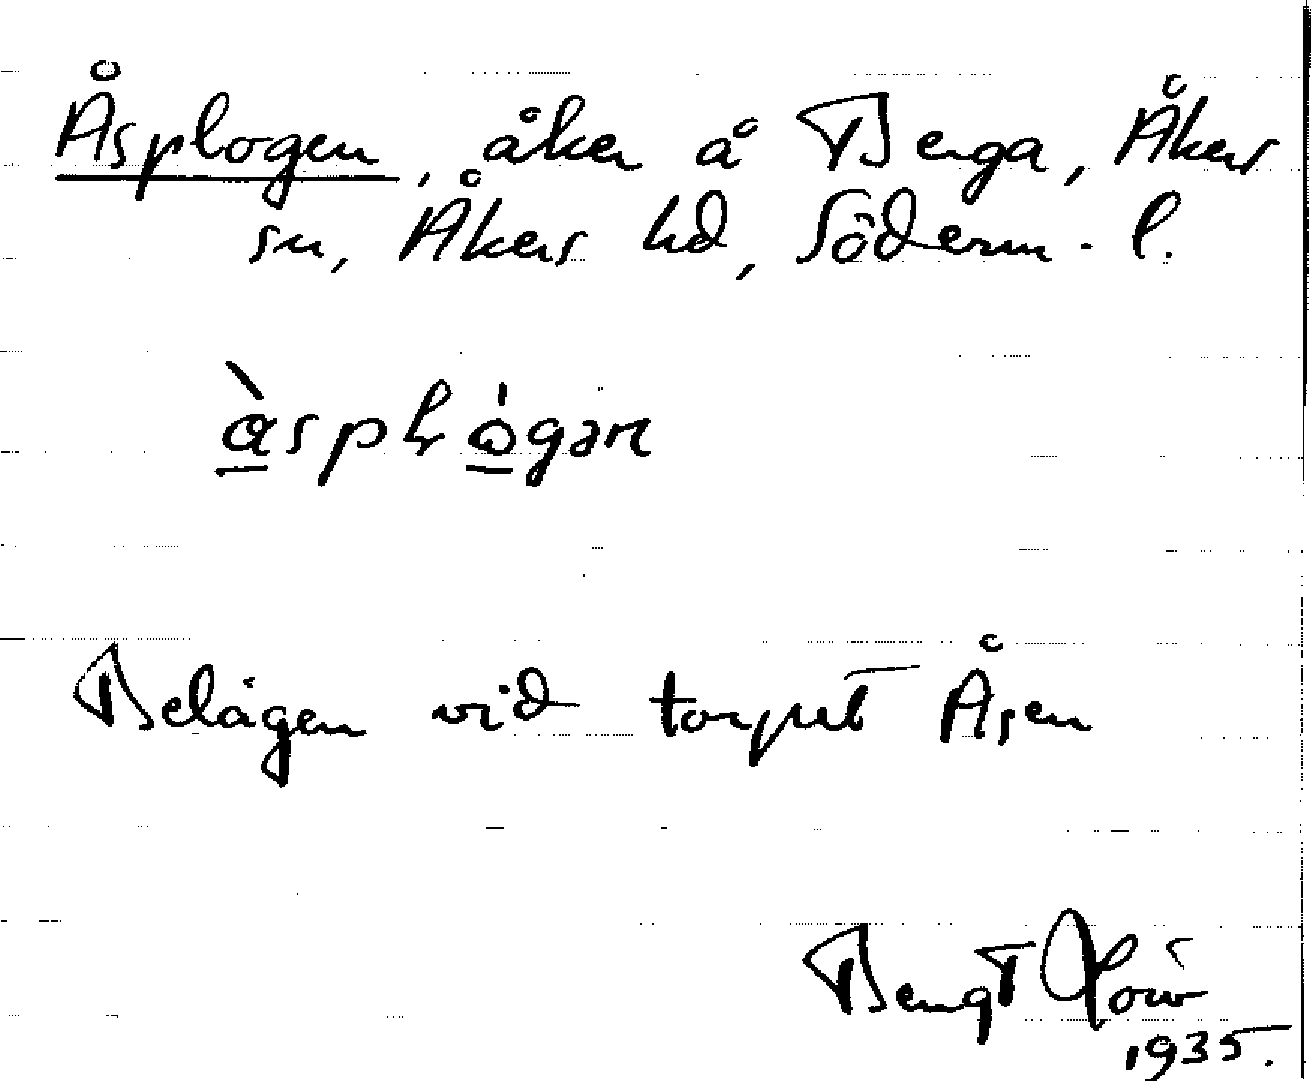 Åsplogen, åker å Berga, Åkers
sn, Åkers hd, Söderm. l.
àsplógən
Belägen vid torpet Åsen
Bengt
1935.